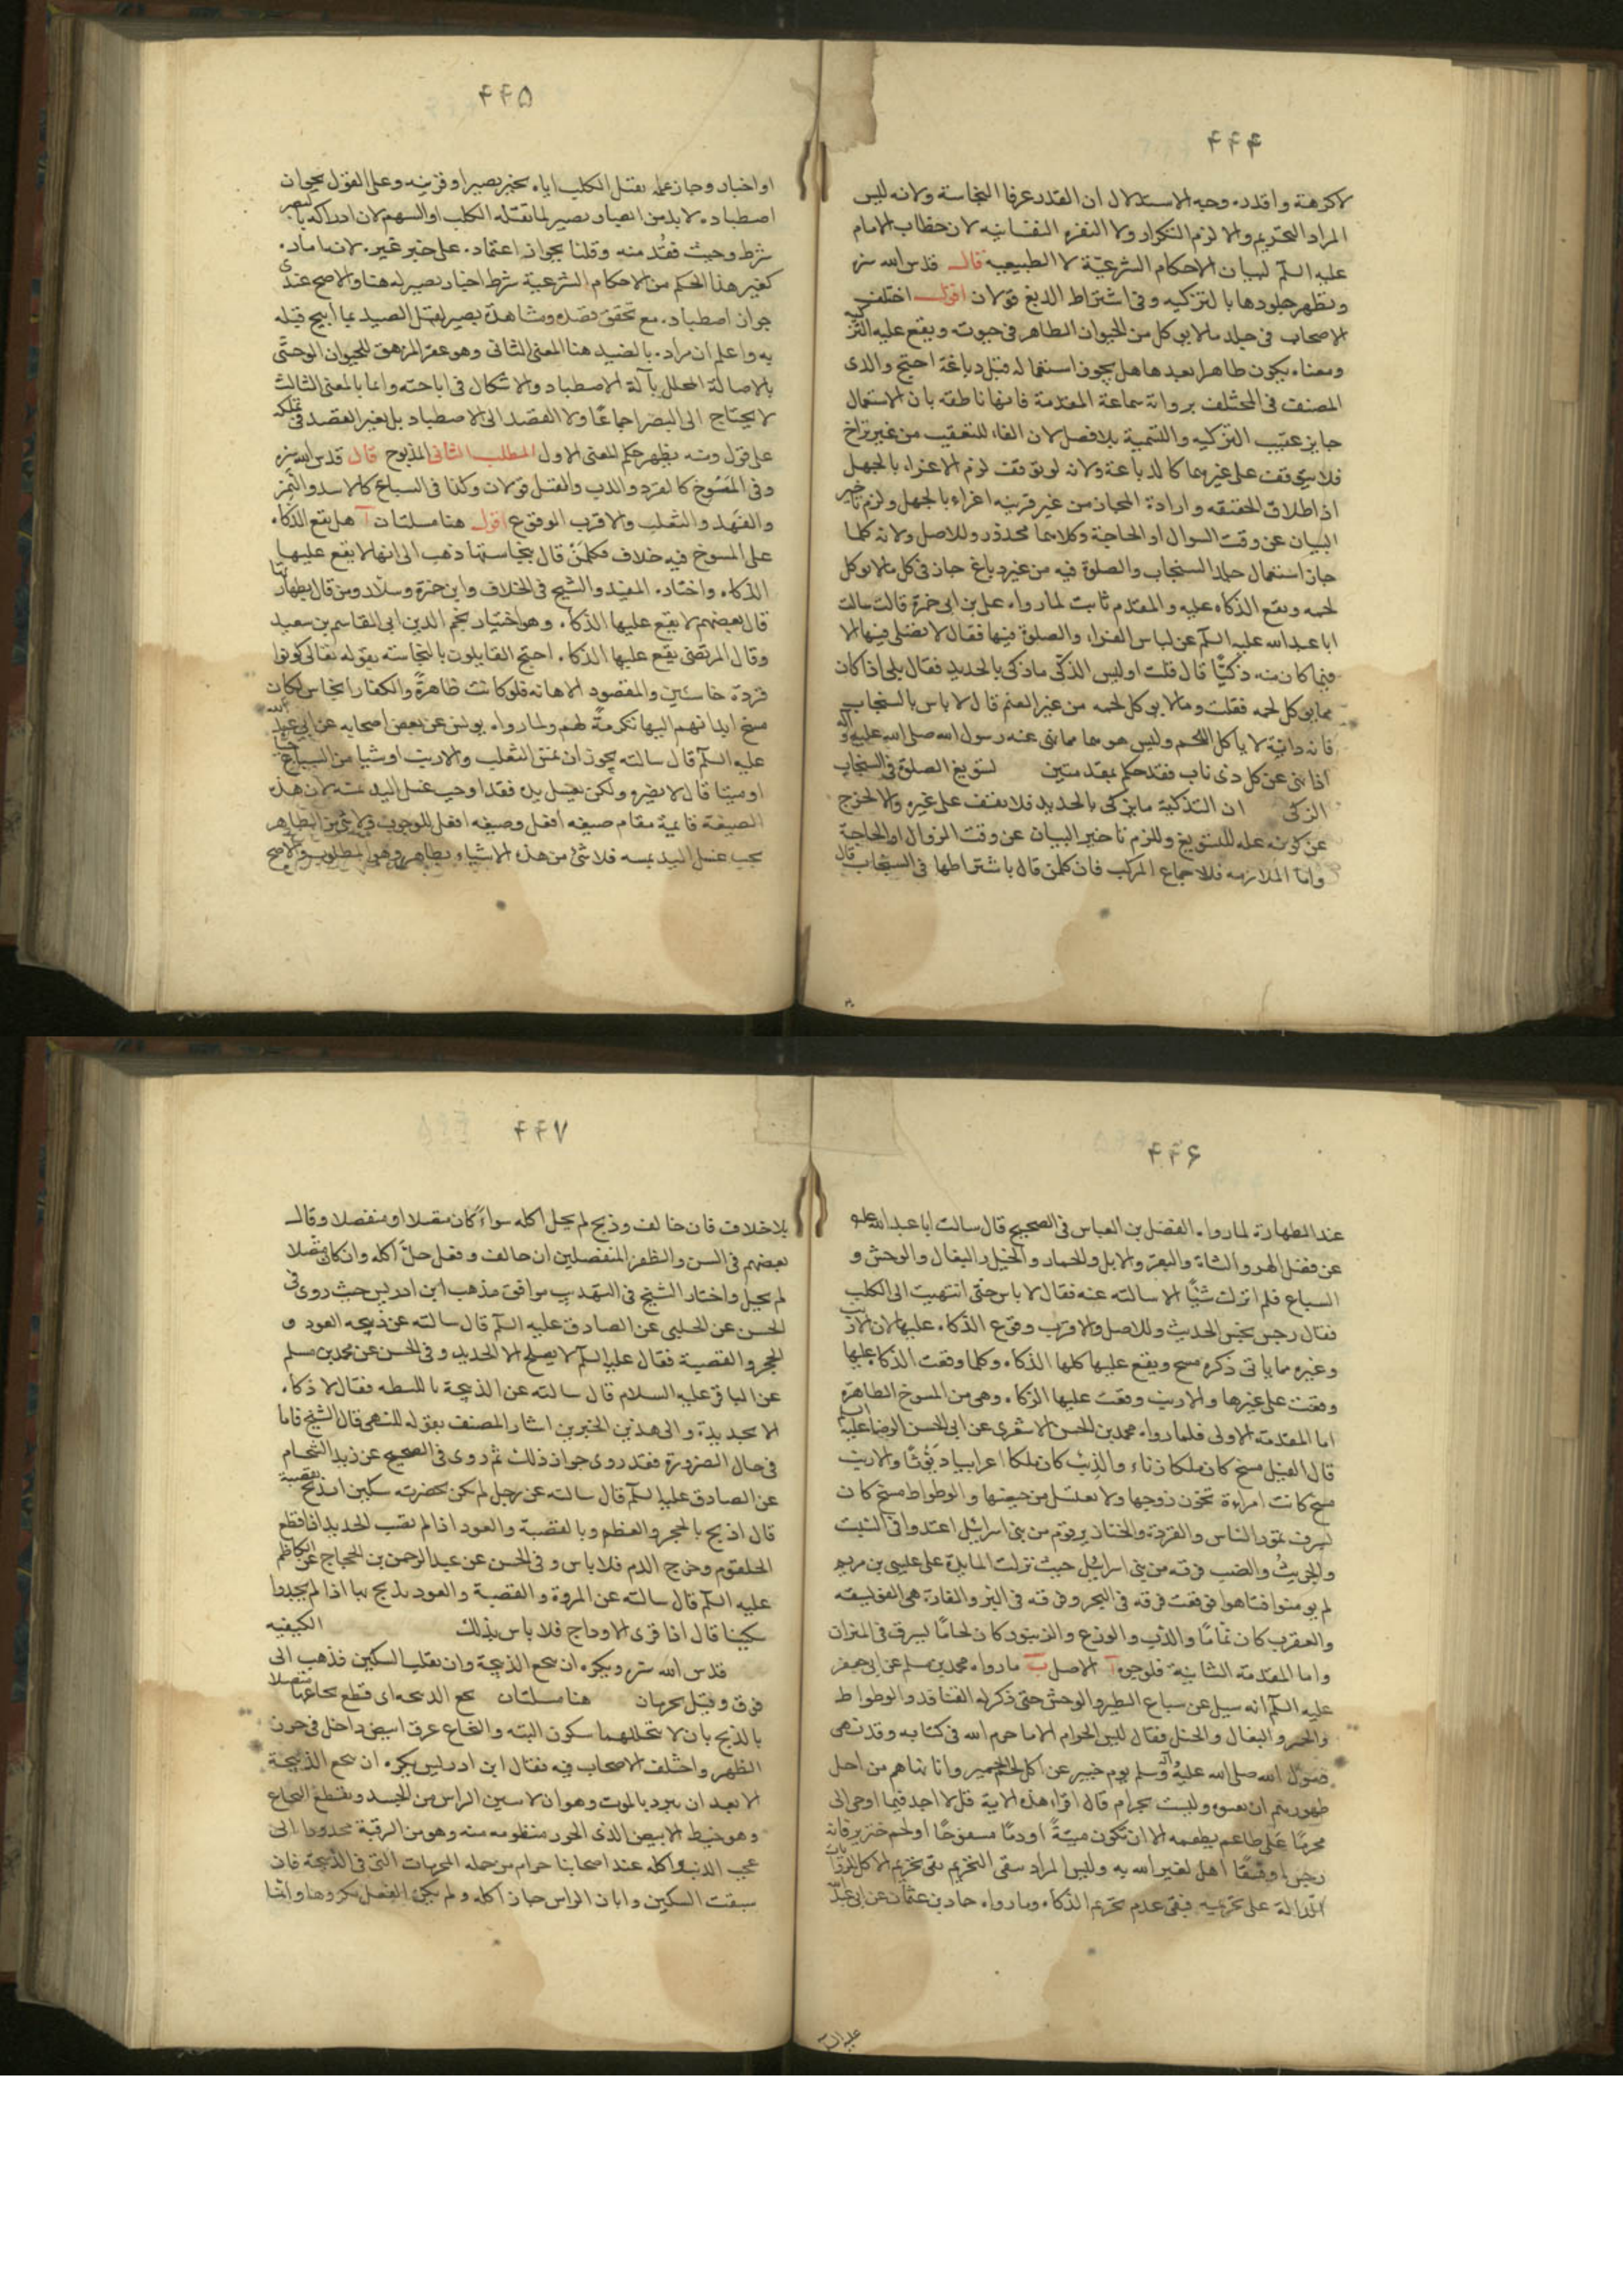 ۴۴۴
لا كرهنة واقدر وجه الاستدلال ان القذر عرفا النجاسة ولانه ليس
المراد التحريم والا لزم التكرار ولا النفرة النفسانيه لان خطاب الامام
عليه السلم لبيان الاحكام الشرعيّة لا الطبيعيه قال قدس الله سره
ويطهر جلودها بالتزكيه وفى اشتراط الدبغ قولان اقول اختلف
الاصحاب فى جلد ما لا يوكل من الحيوان الطاهر فى حيوته ويقع عليه التزكيه
ومعناه يكون طاهرا بعدها هل يجوز استعماله قبل دباغة احتج والذى
المصنف فى المختلف برواية سماعة المتقدمة فانها ناطقه بان الاستعمال
جايز عقيب التزكيه والتسمية بلا فصل لان الفاء للتعقيب من غير تراخ
فلا يتوقف على غيرهما كالدباغة ولانه لو توقفت لزم الاغراء بالجهل
اذ اطلاق الحقيقه وارادة المجاز من غير قرينه اغراء بالجهل ولزم تاخير
البيان عن وقت السوال او الحاجة وكلاهما محذور وللاصل ولانه كلما
جاز استعمال جلد السنجاب والصلوة فيه من غير دباغ جاز فى كل ما لا يوكل
لحمه ويقع الذكاه عليه والمقدم ثابت لما رواه على بن ابى حمزة قال سالت
ابا عبدالله عليه السلم عن لباس الفراء والصلوة فيها فقال لا يصلى فيها الا
فيما كان منه ذكيًّا قال قلت اوليس الذكّى ما ذكى بالحديد فقال بلى اذا كان
مما يوكل لحمه فقلت وما لا يوكل لحمه من غير الغنم قال لا باس بالسنجاب
فانه دابّة لا ياكل اللحم وليس هو مما نهى عنه رسول الله صلى الله عليه وآله
اذا نهى عن كل ذى ناب فقد حكم بمقدمتين لتسويغ الصلوة فى السنجاب
الزكى ان التذكية ما يزكى بالحديد فلا يقف على غيره والا لخرج
عن كونه علة للتسويغ وللزم تاخير البيان عن وقت الزوال او الحاجة
واما الملازمه فلاجماع المركب فان كلمن قال باشتراطها فى السنجاب قال
۴۴۵
او اخبار وجاز عمله بقتل الكلب اياه بخبر بصير او قرينه وعلى القول بجواز
اصطياده لا بد من ان يصير لما تقتله الكلب او السهم لان ادراكه بالبصر
شرط وحيث فقد منه وقلنا بجواز اعتماده على خبر غيره لانها اماره
كغير هذا الحكم من الاحكام الشرعية شرط اخبار بصير له هنا والاصح عندى
جواز اصطياده مع تحقق قصده ومشاهدة بصير لقتل الصيد بما ابيح قتله
به واعلم ان مراده بالصيد هنا المعنى الثانى وهو عقر المزهق للحيوان الوحشى
بالاصالة المحلل بآلة الاصطياد والا شكال فى اباحته واما بالمعنى الثالث
لا يحتاج الى البصر اجماعًا ولا القصد الى الاصطياد بل يغير القصد فى تملكه
على قول ومنه يظهر حكم المعنى الاول المطلب الثانى المذبوح قال قدس الله سره
وفى المَسوخ كالقرد والدب والفيل قولان وكذا فى السباع كالاسد والنمر
والفهد والثعلب والاقرب الوقوع اقول هنا مسئلتان آ هل يقع الذكاه
على المسوخ فيه خلاف فكلمَنْ قال بنجاستها ذهب الى انها لا يقع عليها
الذكاه واختاره المفيد والشيخ فى الخلاف وابن حمزة وسلار ومن قال بطهارتها
قال بعضهم لا يقع عليها الذكاه وهو اختيار نجم الدين ابى القاسم بن سعيد
وقال المرتضى يقع عليها الذكاه احتج القايلون بالنجاسته بقوله تعالى كونوا
قردة خاسئين والمقصود الاهانه فلو كانت ظاهرةً والكفار انجاس لكان
مسخ ابدانهم اليها تكرمةً لهم ولما رواه يونس عن بعض اصحابه عن ابى عبدالله
عليه السلم قال سالته يجوز ان يمس الثعلب والارنب او شيا من السباع حيا
او ميتا قال لا يضره ولكن يغسل يده فقد اوجب غسل اليد بمسّه لان هذه
الصيغة قايمة مقام صيغه افعل وصيغه افعل للوجوب ولا شئ من الطاهر
يجب غسل اليد بمسه فلا شئ من هذه الاشياء بطاهر وهو المطلوب والاصح
۴۴۶
عند الطهارة لما رواه الفضل بن العباس فى الصحيح قال سالت ابا عبدالله عليه
عن فضل الهر والشاة والبقر والابل والحمار والخيل والبغال والوحش و
السباع فلم اترك شيًا الا سالته عنه فقال لا باس حتى انتهيت الى الكلب
فقال رجس نجس الحديث وللاصل والاقرب وقوع الذكاه عليها لان الارنب
وغيره مما ياتى ذكره مسخ ويقع عليها كلها الذكاه وكلما وقعت الذكاه عليها
وقعت على غيرها والارنب وقعت عليها الزكاه وهى من المسوخ الطاهرة
اما المقدمة الاولى فلما رواه محمد بن الحسن الاشعرى عن ابى الحسن الرضا عليه السلم
قال الفيل مسخ كان ملكا زناء والذئب كان ملكا اعرابيا ديّوثًا والارنب
مسخ كانت امراءة تخون زوجها ولا تغتسل من حيضها والوطواط مسخ كان
يسرق تمور الناس والقردة والخنازير قوم من بنى اسرائيل اعتدوا فى السبت
والجريثُ والضب فرقه من بنى اسرائيل حيث نزلت المايدة على عليسى بن مريم
لم يومنوا فتاهوا فوقعت فرقه فى البحر وفرقه فى البر والفارة هى الفويسقه
والعقرب كان نمّامًا والدب والوزغ والزنبور كان لحامًا ليسرق فى الميزان
واما المقدمة الثانية فلوجوه آ الاصل ب ما رواه محمد بن مسلم عن ابى جعفر
عليه السلم انه سيل عن سباع الطير والوحش حتى ذكر له القنافذ والوطواط
والحمير والبغال والخيل فقال ليس الحرام الا ما حرم الله فى كتابه وقد نهى
رسول الله صلى الله عليه وآله وسلم يوم خيبر عن اكل لحم الحمير وانما نهاهم من اجل
ظهورهم ان يفنوه وليست بحرام قال اقراء هذه الاية قل لا اجد فيما اوحى الى
محرمًا على طاعم يطعمه الا ان تكون ميتةً او دمًا مسفوحًا او لحم خنزير فانه
رجس او فسقًا اهل لغير الله به وليس المراد نفى التحريم نفى تحريم الاكل للروايات
الدالة على تحريمه فبقى عدم تحريم الذكاه وما رواه حماد بن عثمان عن ابى عبدالله
عليه السلم
۴۴۷
بلا خلاف فان خالف وذبح لم يحل اكله سواءً كان متصلا او منفصلا وقال
بعضهم فى السن والظفر المنفصلين ان خالف وفعل حلّ اكله وان كان متصلا
لم يحل واختار الشيخ فى التهذيب موافق مذهب ابن ادريس حيث روى فى
الحسن عن الحلبى عن الصادق عليه السلم قال سالته عن ذبيحه العود و
الحجر والقصبة فقال على عليه السلم لا يصلح الا الحديد وفى الحسن عن محمد بن مسلم
عن الباقر عليه السلام قال سالته عن الذبيحة بالليطه فقال لا ذكاه
الا بحديدة والى هذين الخبرين اشار المصنف بقوله للنهى قال الشيخ فاما
فى حال الضرورة فقد روى جواز ذلك ثم روى فى الصحيح عن زيد الشحام
عن الصادق عليه السلم قال سالته عن رجل لم يكن بحضرته سكين ايذبح بقصبة
قال اذبح بالحجر والعظم وبالقصبة والعود اذا لم تصب الحديد اذا قطع
الحلقوم وخرج الدم فلا باس وفى الحسن عن عبدالرحمن بن الحجاج عن الكاظم
عليه السلم قال سالته عن المروة والقصبة والعود يذبح بها اذا لم يجدوا
سكينا قال اذا فرى الاوداج فلا باس بذلك الكيفيه
قدس الله سره ويكره ان ينخع الذبيحة وان يقلب السكين فذهب الى
فوق وقيل يحرمان هنا مسئلتان نخع الذبيحه اى قطع نخاعها متصلا
بالذبح بان لا يتخللهما سكون البته والنخاع عرق ابيض داخل فى خرز
الظهر واختلف الاصحاب فيه فقال ابن ادريس يكره ان ينخع الذبيحة
الا بعد ان تبرد بالموت وهو ان لا يبين الراس من الجسد ويقطع النخاع
وهو خيط الابيض الذى الخرز منظومه منه وهو من الرقبة ممدودا الى
عجب الذنب واكله عند اصحابنا حرام من جمله المحرمات التى فى الذبيحة فان
سبقت السكين وابان الراس جاز اكله ولم يكن الفصل مكروها وانما